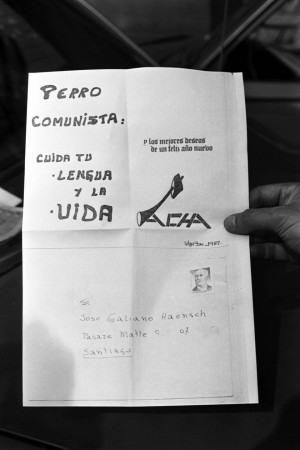 PERRO
COMUNISTA:
CUIDA TU
·LENGUA
Y LA
·VIDA
y los mejores deseos
de un feliz año nuevo
ACHA
Sr.
Jose Galiano Haensch
Pasaje Matte
Santiago